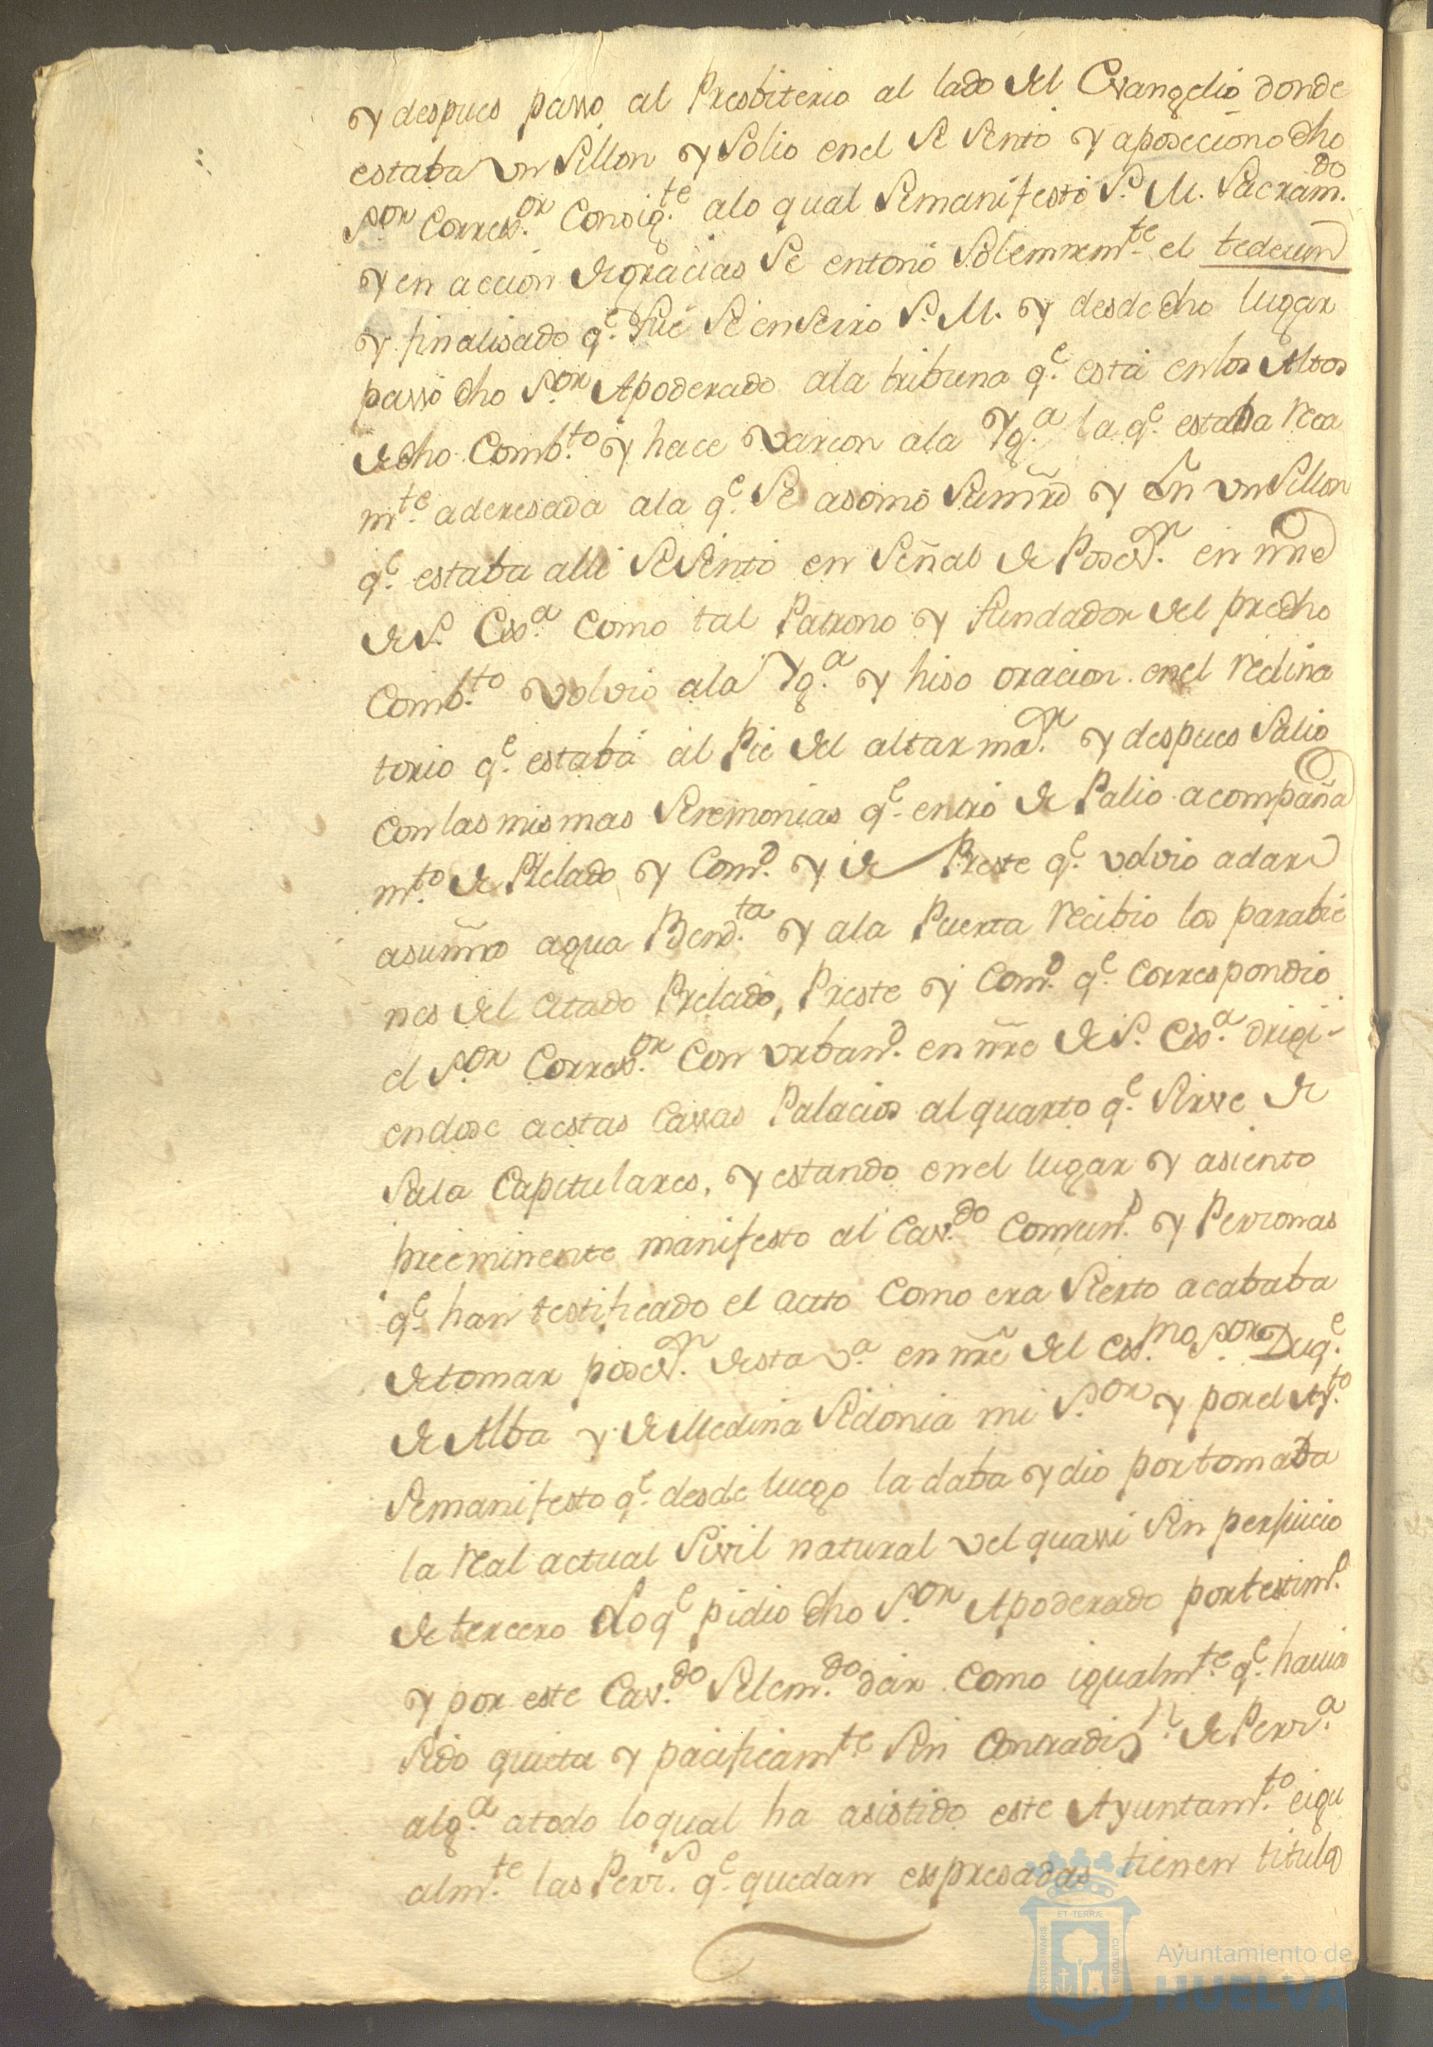 y despues passo al Presbiterio al lado del Evangelio donde
estaba vn Sillon y Solio enel Se Sento y aposeciono dho
S.or Corres.or Consig.te alo qual Semanifestó S. M. Sacram.do
y en accion degracias Se entonó Solemnem.te el tedeum
y finalisado q.e fue Se enserro S. M. y desde dho lugar
passó dho S.or Apoderado ala tribuna q.e está enlos Altos
de dho Comb.to y hace varcon ala Yg.a la q.e estaba rica
m.te aderesada ala q.e Se asomó Sumrd y En vn Sillon
q.e estaba alli Se Sento en Señas de Poses.n en nre
de S. Ex.a como tal Patrono y fundador del predho
Comb.to volvio ala Yg.a y hiso oracion enel reclina
torio q.e estaba al Pie del altar ma.r y despues Salio
con las mismas Seremonias q.e entró de Palio acompaña
m.to de Prelado y Com.d y de Preste q.e volvio adar
asumrd agua Bend.ta y ala Puerta recibio los parabie
nes del citado Prelado, Preste y Com.d q.e correspondio
el S.or Corres.or con vrban.d en nre de S. Ex.a dirigi-
endose aestas Cassas Palacios al quarto q.e Sirve de
Sala Capitulares, y estando enel lugar y asiento
preeminente manifesto al Cav.do Comun.d y Perzonas
q.e han testificado el acto como era Sierto acababa
detomar poses.n desta v.a en nre del Ex.mo S.or Duq.e
de Alba y de Medina Sidonia mi S.or y porel Ay.to
Semanifesto q.e desde luego la daba y dio por tomada
la real actual Sivil natural vel quassi Sin perjuicio
de tercero Loq.e pidio dho S.or Apoderado portestim.o
y por este Cav.do Selem.do dar como igualm.te q.e havia
Sido quieta y pacificam.te Sin Contradis.n de Perz.a
alg.a atodo loqual ha asistido este Ayuntam.to eigu
alm.te las Perz.s q.e quedan expresadas tienen titulo
Ayuntamiento de
HUELVA